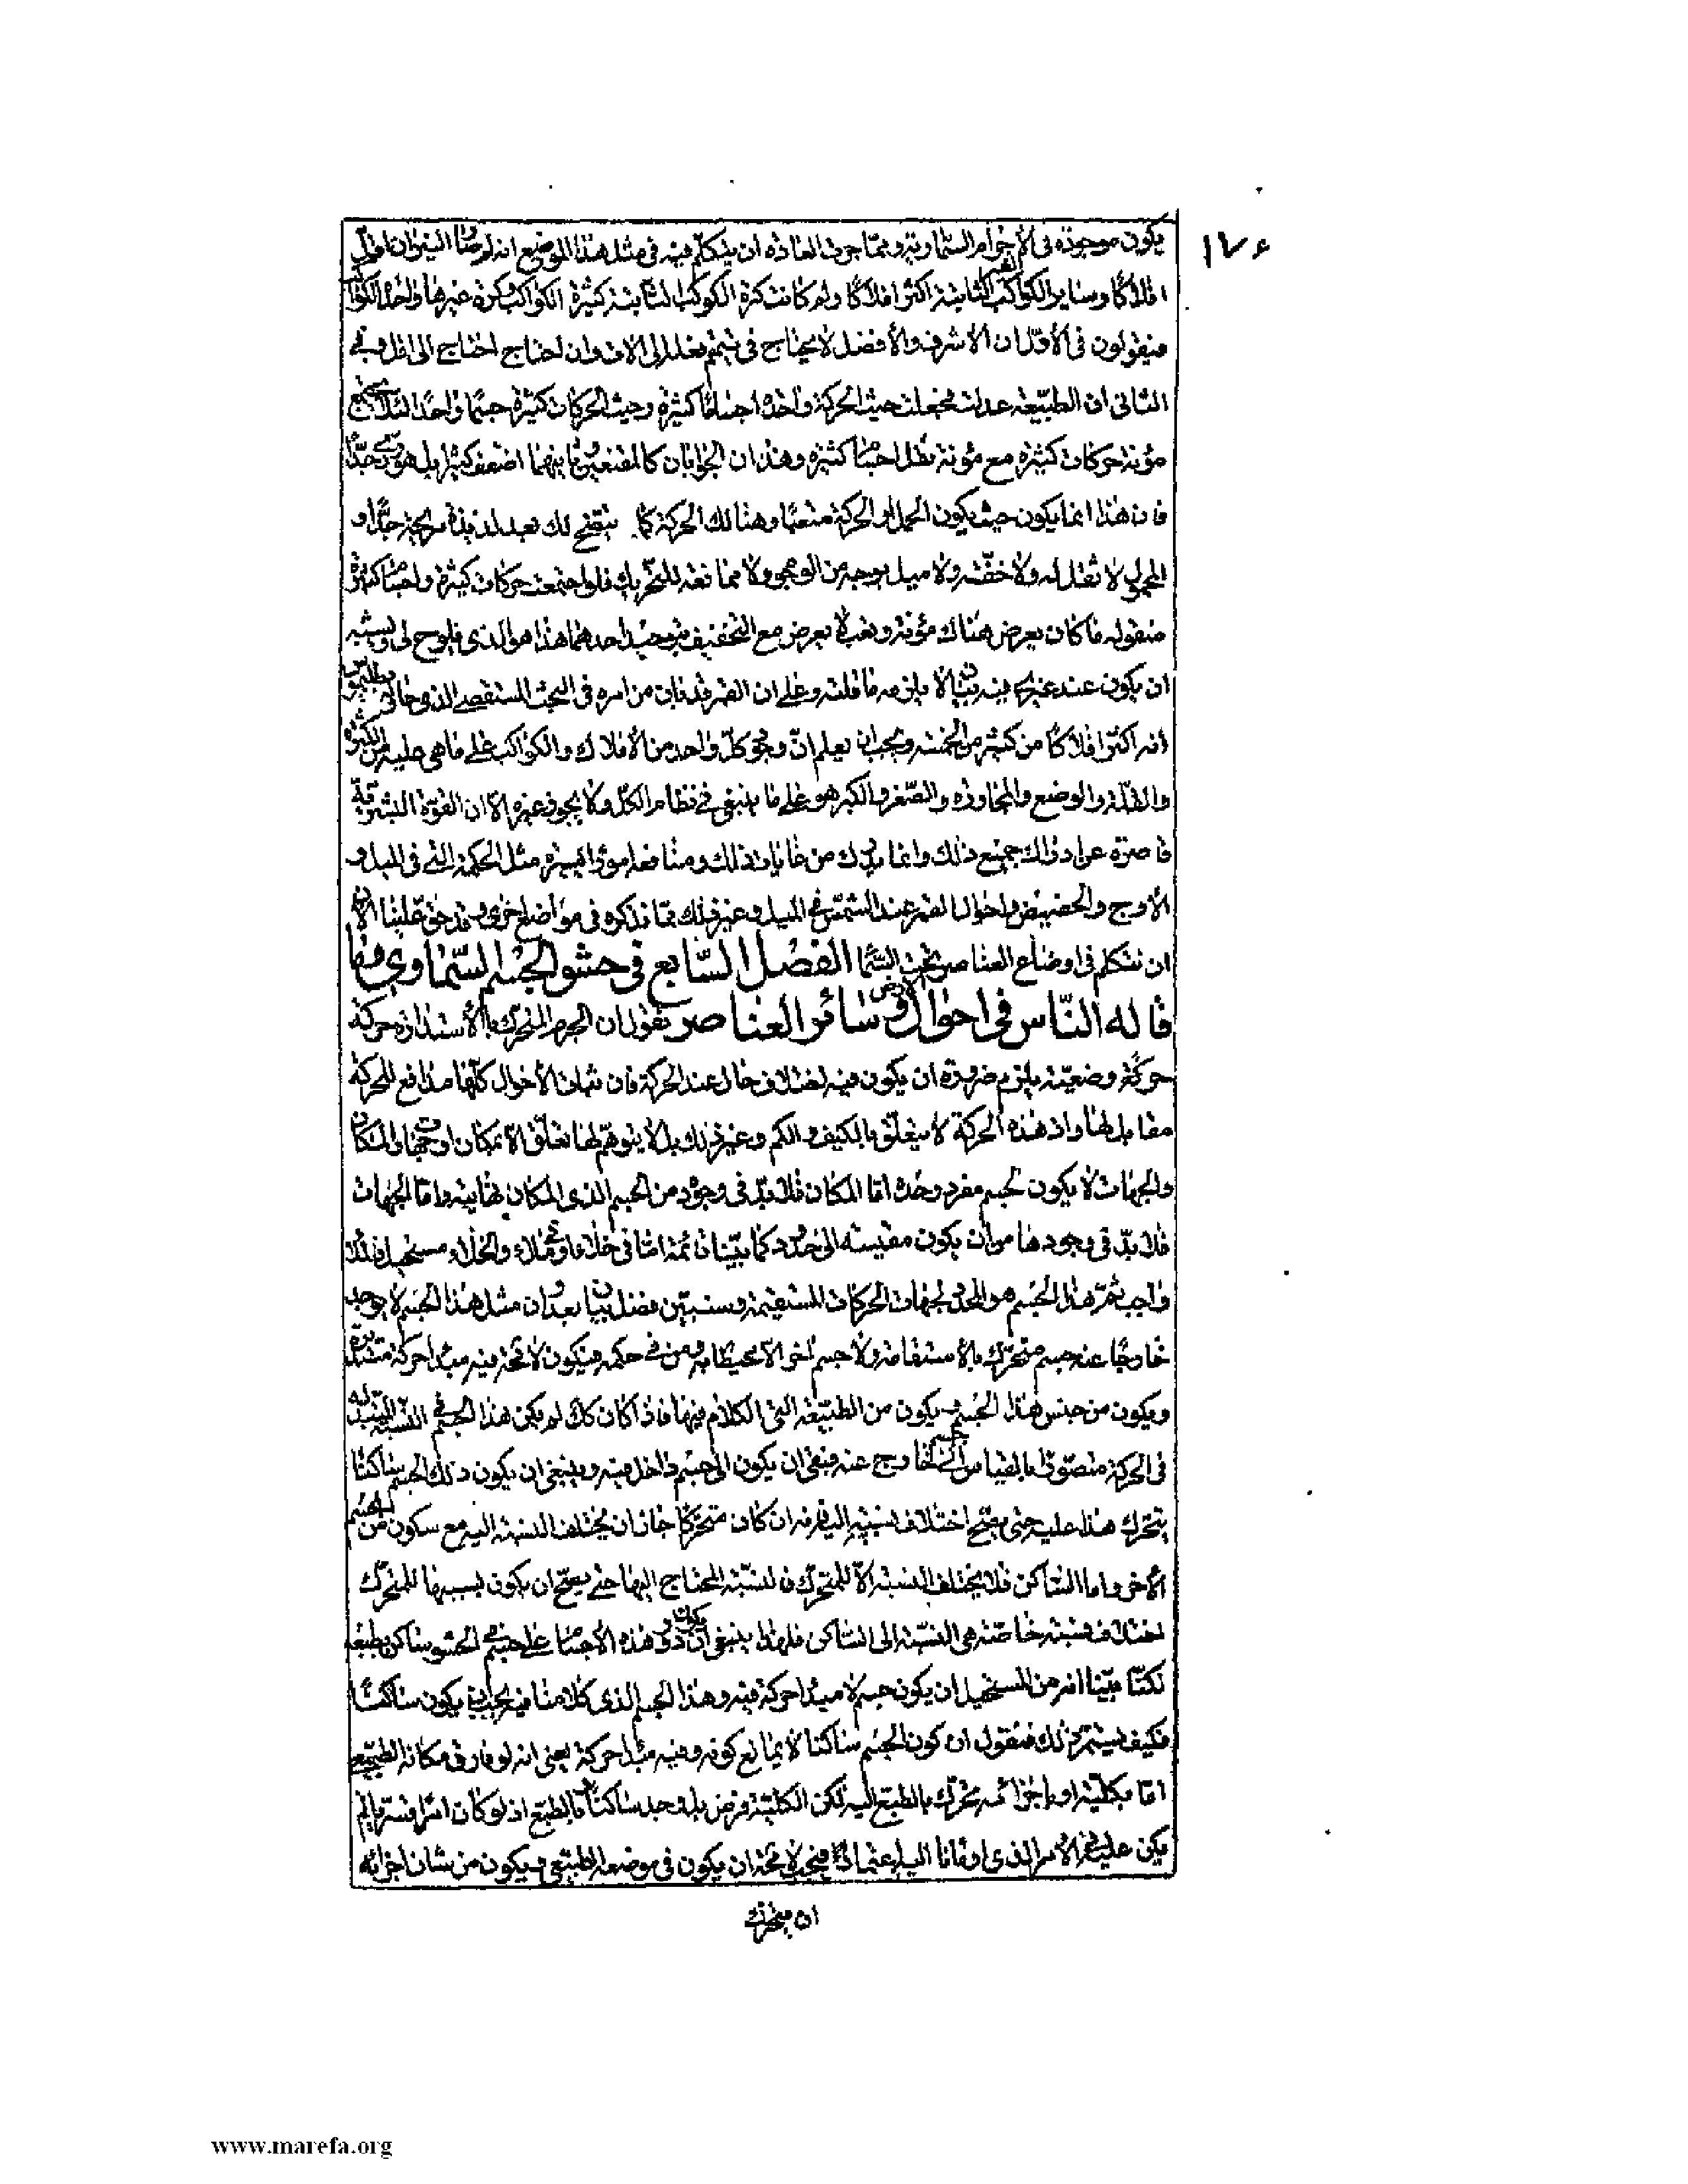 ١٧٤
يكون موجودة فى الأجرام السماوية ومما جرت العادة ان يتكلم فيه فى مثل هذا الموضع انه لم صار النيران اقل
افلاكا وساير الكواكب الغير الثابتة اكثر افلاكا ولم كانت كرة الكواكب الثابتة كثيرة الكواكب وكرة غيرها واحد الكواكب
فيقولون فى الأول ان الأشرف والأفضل لا يحتاج فى تتميم فعله الى الات وان احتاج احتاج الى اقل وفى
الثانى ان الطبيعة عدلت فجعلت حيث الحركة واحدة اجساما كثيرة وحيث الحركات كثيرة جسما واحدا لئلا يجتمع
مؤنة حركات كثيرة مع مؤنة نقل اجسام كثيرة وهذان الجوابان كالمقنعين وثانيهما اضعف كثيرا بل هو ردى جدا
فان هذا انما يكون حيث يكون الحمل او الحركة متعبا وهنالك الحركة كما يتضح لك بعد لذيذة مريحة جدا و
المحمول لا ثقل له ولا خفة ولا ميل بوجه من الوجوه ولا ممانعة للتحريك فلو اجتمعت حركات كثيرة واجسام كثيرة
منقوله ما كان يعرض هناك مؤنة وتعب لا يعرض مع التخفيف بتوحيد احدهما هذا هو الذى يلوح لى ويشبه
ان يكون عند غيرى فيه بيان لا يلزمه ما قلته وعلى ان القمر قد بان من امره فى البحث المستقصى الذى حاوله بطلميوس
انه اكثر افلاكا من كثير من الخمسة ويجب ان يعلم ان وجود كل واحد من الأفلاك والكواكب على ما هى عليه من الكثرة
والقلة والوضع والمجاورة والصغر والكبر هو على ما ينبغى فى نظام الكل ولا يجوز غيره الا ان القوة البشرية
قاصرة عن ادراك جميع ذلك وانما يدرك من غايات ذلك ومنافعه امورا يسيرة مثل الحكمة التى فى الميل و
الأوج والحضيض واحوال القمر عند الشمس فى الميل وغير ذلك مما نذكره فى مواضع اخرى وقد حق علينا الان
ان نتكلم فى اوضاع العناصر تحت السما الفصل السابع فى حشو الجسم السماوى وما
قاله الناس فى احوال الارض وسائر العناصر نقول ان الجرم المتحرك بالأستدارة حركة
حركة وضعية يلزم ضرورة ان يكون فيه اختلاف حال عند الحركة فان ثبات الأحوال كلها مدافع للحركة
مقابل لها واذ هذه الحركة لا يتعلق بالكيف والكم وغير ذلك بل لا يتوهم لها تعلق الا بمكان او جهات والمكان
والجهات لا يكون لجسم مفرد وحده اما المكان فلا بد فى وجوده من الجسم الذى المكان نهايته واما الجهات
فلا بد فى وجودها من ان يكون مقيسه الى حدود كما بينا ثمة اما فى خلاء او فى ملاء والخلاء مستحيل فالملاء
واجب ثم هذا الجسم هو المحدد لجهات الحركات المستقيمة وسنبين فضل بيان بعد ان مثل هذا الجسم لا يوجد
خارجا عنه جسم متحرك بالأستقامة ولا جسم اخر الا محيطا به ومن فى حكمه فيكون لا محة فيه مبدا حركة مستديرة
ويكون من جنس هذا الجسم ويكون من الطبيعة التى الكلام فيها فاذا كان كك لم يكن هذا الجسم فى النسبة المتبدلة
فى الحركة متصورا بالقياس الى جسم خارج عنه فبقى ان يكون الى جسم داخل فيه وينبغى ان يكون ذلك الجسم ساكنا
يتحرك هذا عليه حتى يصح اختلاف نسبته اليه فانه ان كان متحركا جاز ان يختلف النسبة اليه مع سكون من الجسم
الأخر واما الساكن فلا يختلف النسبة الا للمتحرك فالنسبة المحتاج اليها حتى يصح ان يكون بسببها للمتحرك
اختلاف نسبة خاصة هى النسبة الى الساكن فلهذا ينبغى ان يكون دور هذه الأجسام على جسم الحشو ساكن بطبعه
لكنا بينا انه من المستحيل ان يكون جسم لا مبدا حركة فيه وهذا الجسم الذى كلامنا فيه يجب ان يكون ساكنا
فكيف يستمر ذلك فنقول ان كون الجسم ساكنا لا يمانع كونه وفيه مبدا حركة يعنى انه لو فارق مكانه الطبيعى
اما بكليته او باجزائه تحرك بالطبع اليه لكن الكلية فرض بل وجد ساكنا بالطبع اذ لو كان امرا قسريا لم
يكن عليه فى الأمر الذى اومانا اليه اعتماد فيجب لا محة ان يكون فى موضعه الطبيعى ويكون من شان اجزائه
ان يتحرك
www.marefa.org